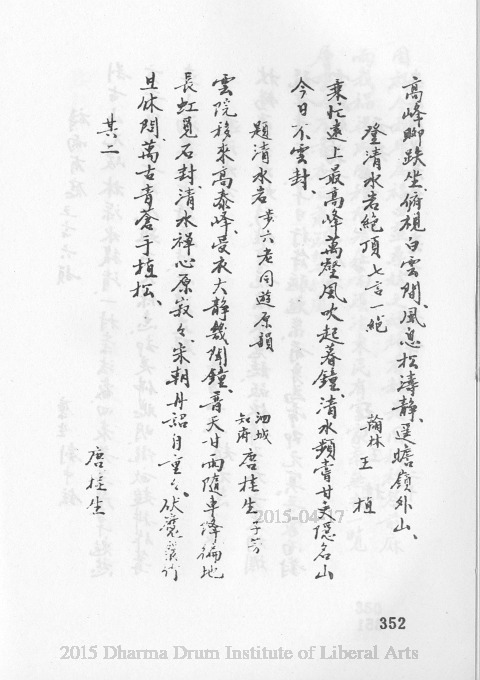 高峰腳跌坐、俯視白雲間、風息松濤靜、遥瞻嶺外山、
登清水岩絕頂 七言一絕
翰林 王 植
乘忙還上最高峰、萬壑風吹起暮鐘、清水類膏甘天隱、名山
今日不雲封、
題清水岩 步六老同遊原韻
泗城知府 唐桂生 子芳
雲院移來高泰峰、曼衣大靜幾聞鐘、普天甘雨隨車降、徧地
長虹覓石封、清水禪心原寂々、宋朝丹詔自重々、伏魔
且休問、萬古青蒼手植松、
其二
唐桂生
2015-04-17
352
2015 Dharma Drum Institute of Liberal Arts